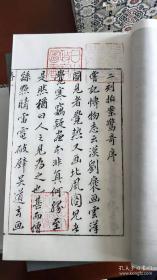 二刻拍案驚奇序
嘗記博物志云漢劉褒畫雲漢
圖見者覺熱又画北風圖見者
覺寒竊疑画本非真何緣至
是然猶曰人之見為之也甚而僧
繇點睛雷電破壁吳道玄画